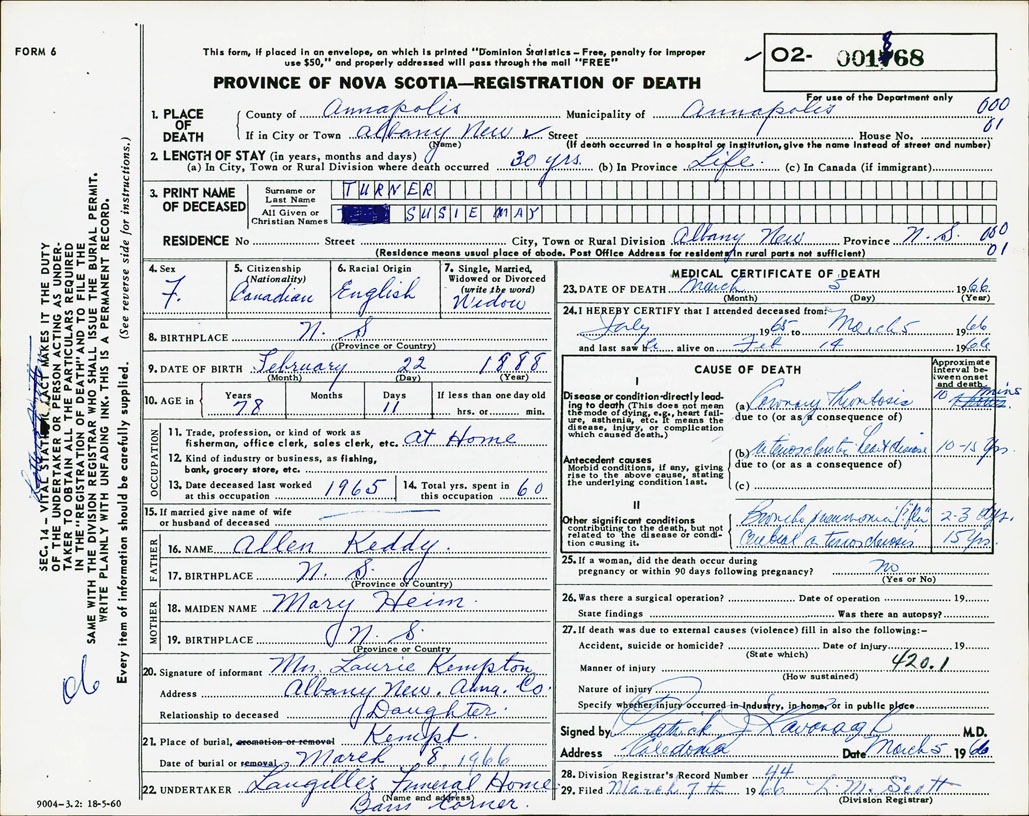 FORM 6
This form, if placed in an envelope, on which is printed "Dominion Statistics – Free, penalty for improper
use $50," and properly addressed will pass through the mail "FREE"
PROVINCE OF NOVA SCOTIA—REGISTRATION OF DEATH
✓ 02- 001868
For use of the Department only
1. PLACE OF DEATH
County of Annapolis Municipality of Annapolis 000
If in City or Town Albany New ✓ Street House No. 01
(Name) (If death occurred in a hospital or institution, give the name instead of street and number)
2. LENGTH OF STAY (in years, months and days)
(a) In City, Town or Rural Division where death occurred 30 yrs. (b) In Province Life. (c) In Canada (if immigrant)
3. PRINT NAME OF DECEASED
Surname or Last Name TURNER
All Given or Christian Names SUSIE MAY
RESIDENCE No Street City, Town or Rural Division Albany New Province N.S. 000
(Residence means usual place of abode. Post Office Address for residents in rural parts not sufficient) 01
4. Sex F.
5. Citizenship (Nationality) Canadian
6. Racial Origin English
7. Single, Married, Widowed or Divorced (write the word) Widow
8. BIRTHPLACE N. S
(Province or Country)
9. DATE OF BIRTH February 22 1888
(Month) (Day) (Year)
10. AGE in Years Months Days If less than one day old
78 11 hrs. or min.
OCCUPATION
11. Trade, profession, or kind of work as
fisherman, office clerk, sales clerk, etc. At Home
12. Kind of industry or business, as fishing,
bank, grocery store, etc.
13. Date deceased last worked
at this occupation 1965
14. Total yrs. spent in
this occupation 60
15. If married give name of wife
or husband of deceased
FATHER
16. NAME Allen Keddy.
17. BIRTHPLACE N. S.
(Province or Country)
MOTHER
18. MAIDEN NAME Mary Heim.
19. BIRTHPLACE N. S.
(Province or Country
20. Signature of informant Mrs. Laurie Kempton
Address Albany New. Anna. Co.
Relationship to deceased Daughter.
21. Place of burial, cremation or removal Kempt.
Date of burial or removal March 8, 1966
22. UNDERTAKER Langille's Funeral Home
(Name and address)
Corner.
9004–3.2: 18-5-60
MEDICAL CERTIFICATE OF DEATH
23. DATE OF DEATH March 5 1966
(Month) (Day) (Year)
24. I HEREBY CERTIFY that I attended deceased from:
July 1965 to March 5 1966
and last saw h alive on Feb 14 1966
CAUSE OF DEATH
Approximate interval between onset and death
I
Disease or condition directly leading to death (This does not mean the mode of dying, e.g., heart failure, asthenia, etc. It means the disease, injury, or complication which caused death.)
(a) Coronary Thrombosis 10 mins
due to (or as a consequence of)
Antecedent causes
Morbid conditions, if any, giving rise to the above cause, stating the underlying condition last.
(b) arteriosclerotic heart disease 10-15 yrs.
due to (or as a consequence of)
(c)
II
Other significant conditions
contributing to the death, but not related to the disease or condition causing it.
Broncho pneumonia 2-3 dys.
cerebral arteriosclerosis 15 yrs.
25. If a woman, did the death occur during
pregnancy or within 90 days following pregnancy? no
(Yes or No)
26. Was there a surgical operation? Date of operation 19
State findings Was there an autopsy?
27. If death was due to external causes (violence) fill in also the following:–
Accident, suicide or homicide? Date of injury 19
(State which)
Manner of injury 420.1
(How sustained)
Nature of injury
Specify whether injury occurred in industry, in home, or in public place
Signed by Patrick J Kavanagh M.D.
Address Caledonia Date March 5 1966
28. Division Registrar's Record Number 44
29. Filed March 7th 1966 L. M. Scott
(Division Registrar)
SEC. 14 – VITAL STATISTICS ACT MAKES IT THE DUTY
OF THE UNDERTAKER OR PERSON ACTING AS UNDER-
TAKER TO OBTAIN ALL THE PARTICULARS REQUIRED
IN THE "REGISTRATION OF DEATH" AND TO FILE THE
SAME WITH THE DIVISION REGISTRAR WHO SHALL ISSUE THE BURIAL PERMIT.
WRITE PLAINLY WITH UNFADING INK. THIS IS A PERMANENT RECORD.
Every item of information should be carefully supplied. (See reverse side for instructions.)